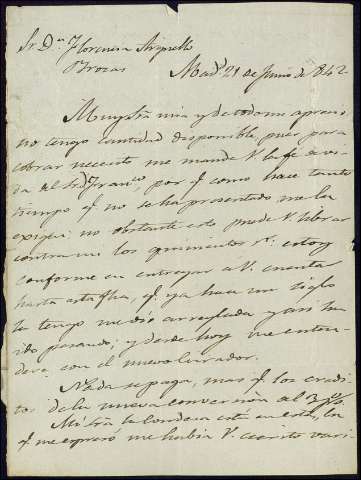 Sr Dn Florencio
Brozas
Madd 21 de Junio de 842
Muy Sra mia y de todo mi aprecio
no tengo cantidad disponible, pues para
cobrar necesito me mande V. la fe de vi-
da del Sr Dn Franco por q. como hace tanto
tiempo q. no se ha presentado me la
exigen: no obstante esto puede V. librar
contra mi los quinientos rs. estoy
conforme en entregar a V. cuenta
hasta esta fha, q. ya hace un siglo
la tengo medio arreglada y asi ha
ido pasando; y desde hoy me enten-
deré con el nuevo
Nada se paga, mas q. los credi-
tos de la nueva conversion al 3 p%.
Mi Sra la Condesa está en esta, la
q. me expresó me habia V. escrito vari-